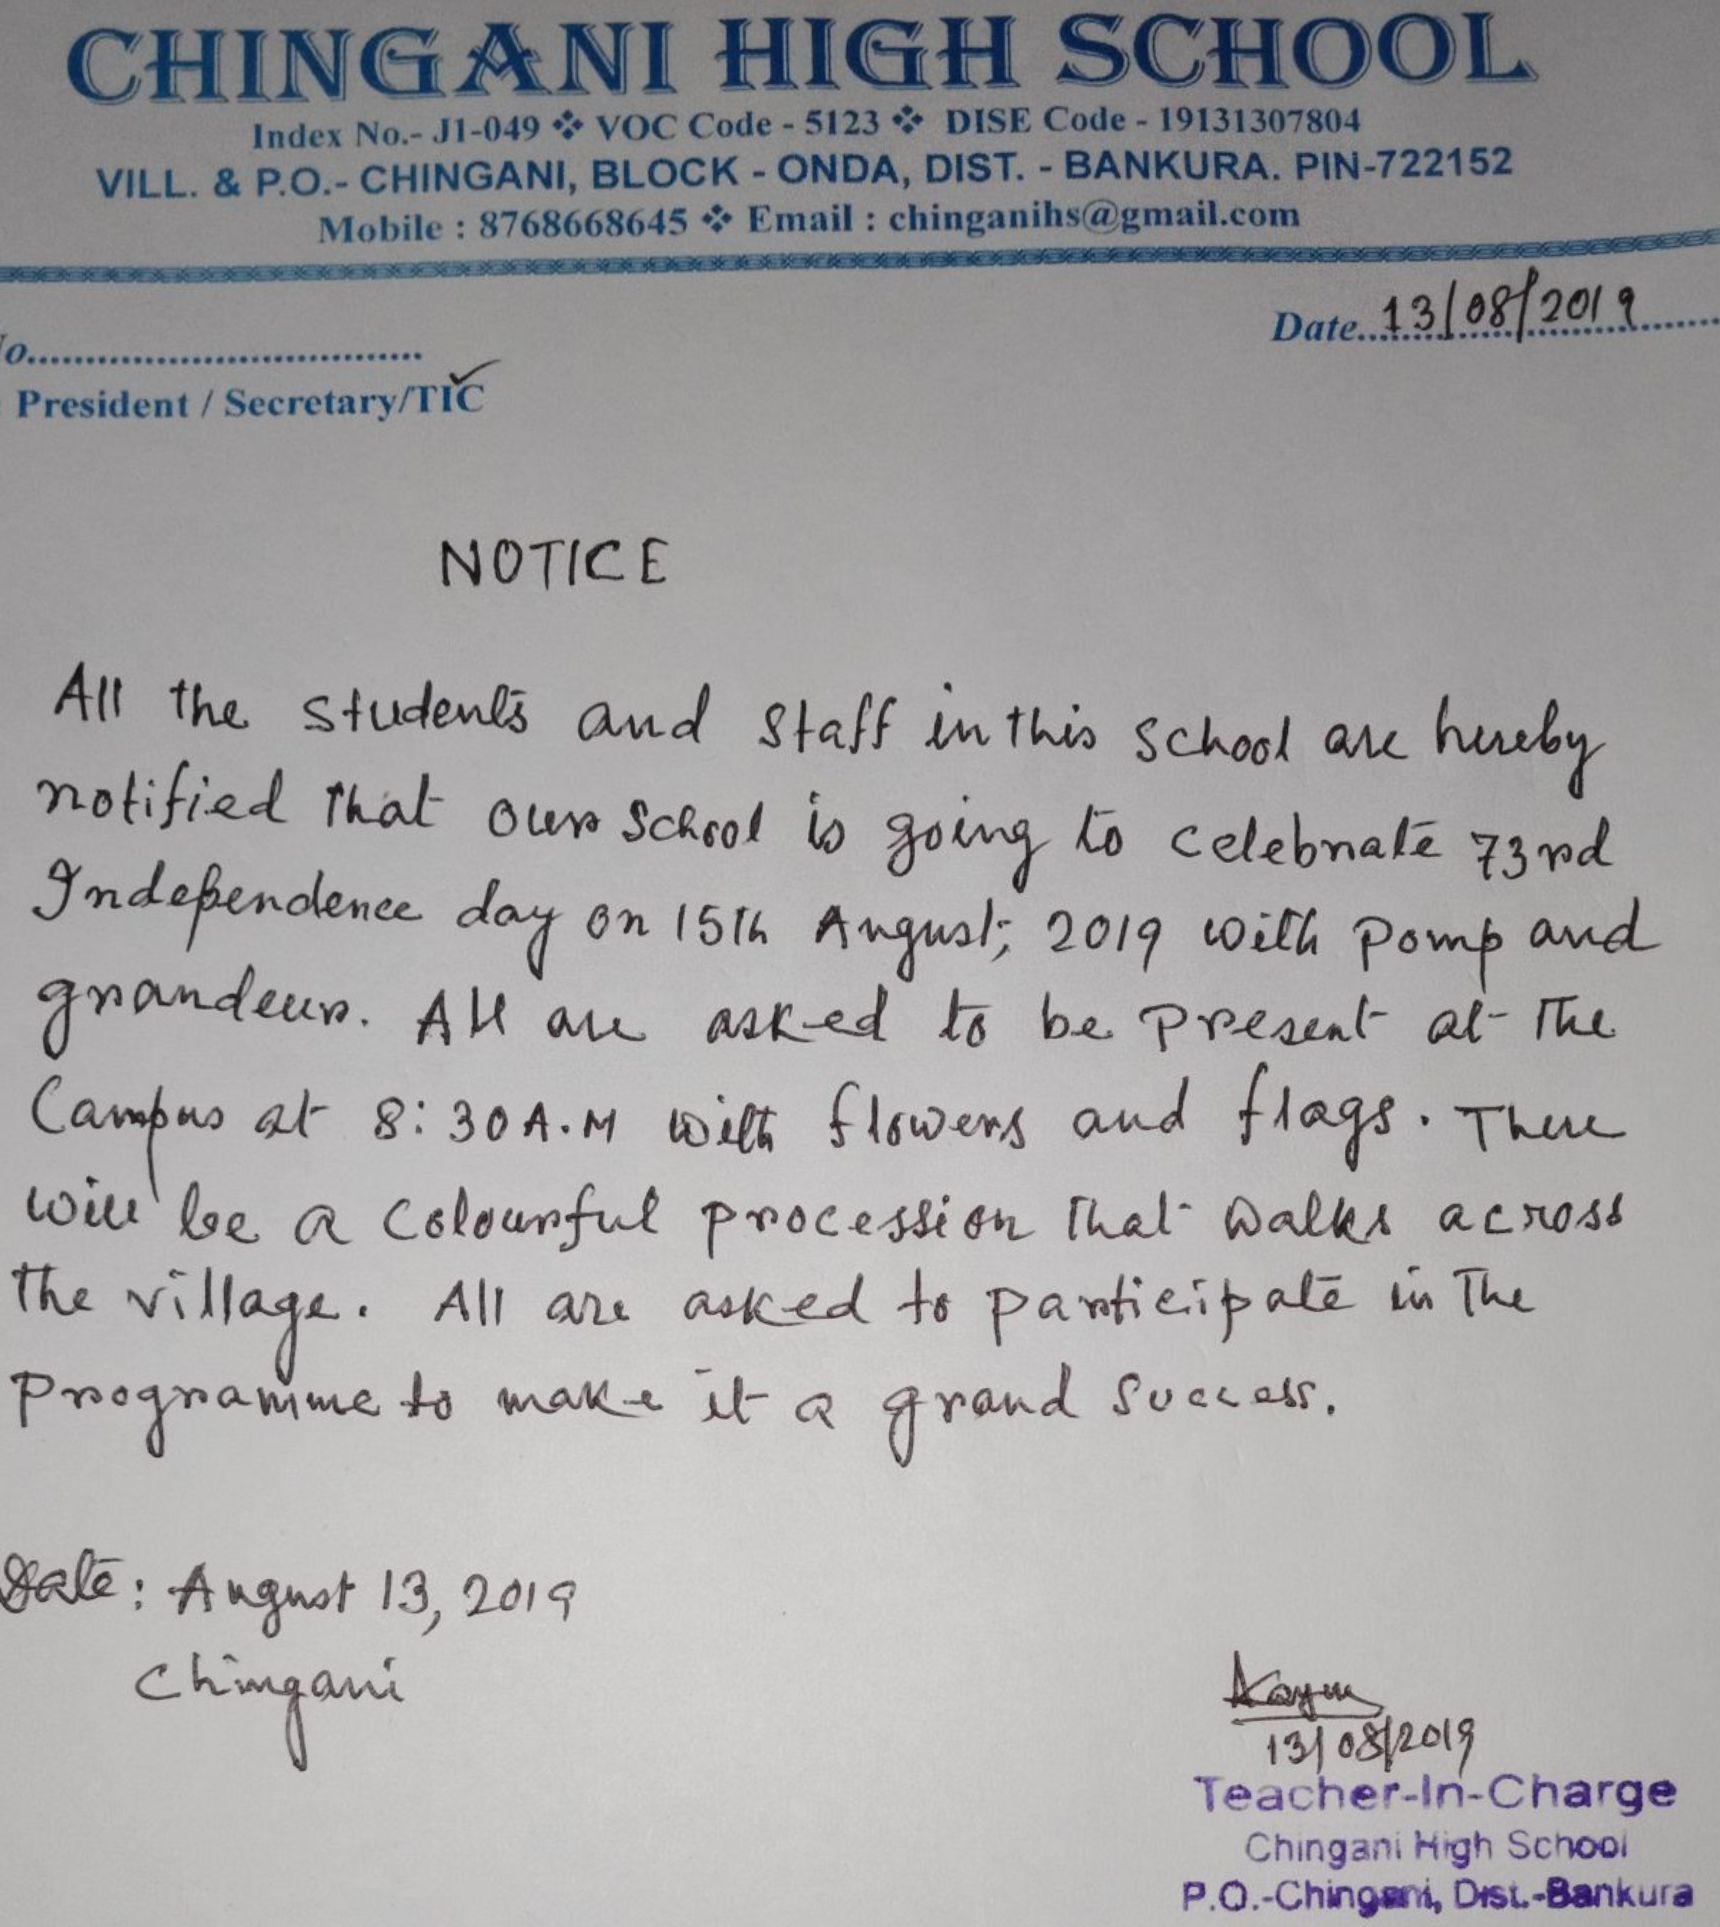 CHINGANI HIGH SCHOOL
Index No.- J1-049 ❖ VOC Code - 5123 ❖ DISE Code - 19131307804
VILL. & P.O.- CHINGANI, BLOCK - ONDA, DIST. - BANKURA. PIN-722152
Mobile : 8768668645 ❖ Email : chinganihs@gmail.com
o................................. Date...13/08/2019.......
President / Secretary/TIC
NOTICE
All the students and staff in this school are hereby
notified that our school is going to celebrate 73rd
Independence day on 15th August, 2019 with pomp and
grandeur. All are asked to be present at the
Campus at 8:30 A.M with flowers and flags. There
will be a colourful procession that walks across
the village. All are asked to participate in the
programme to make it a grand success.
Date: August 13, 2019
Chingani
13/08/2019
Teacher-In-Charge
Chingani High School
P.O.-Chingani, Dist.-Bankura